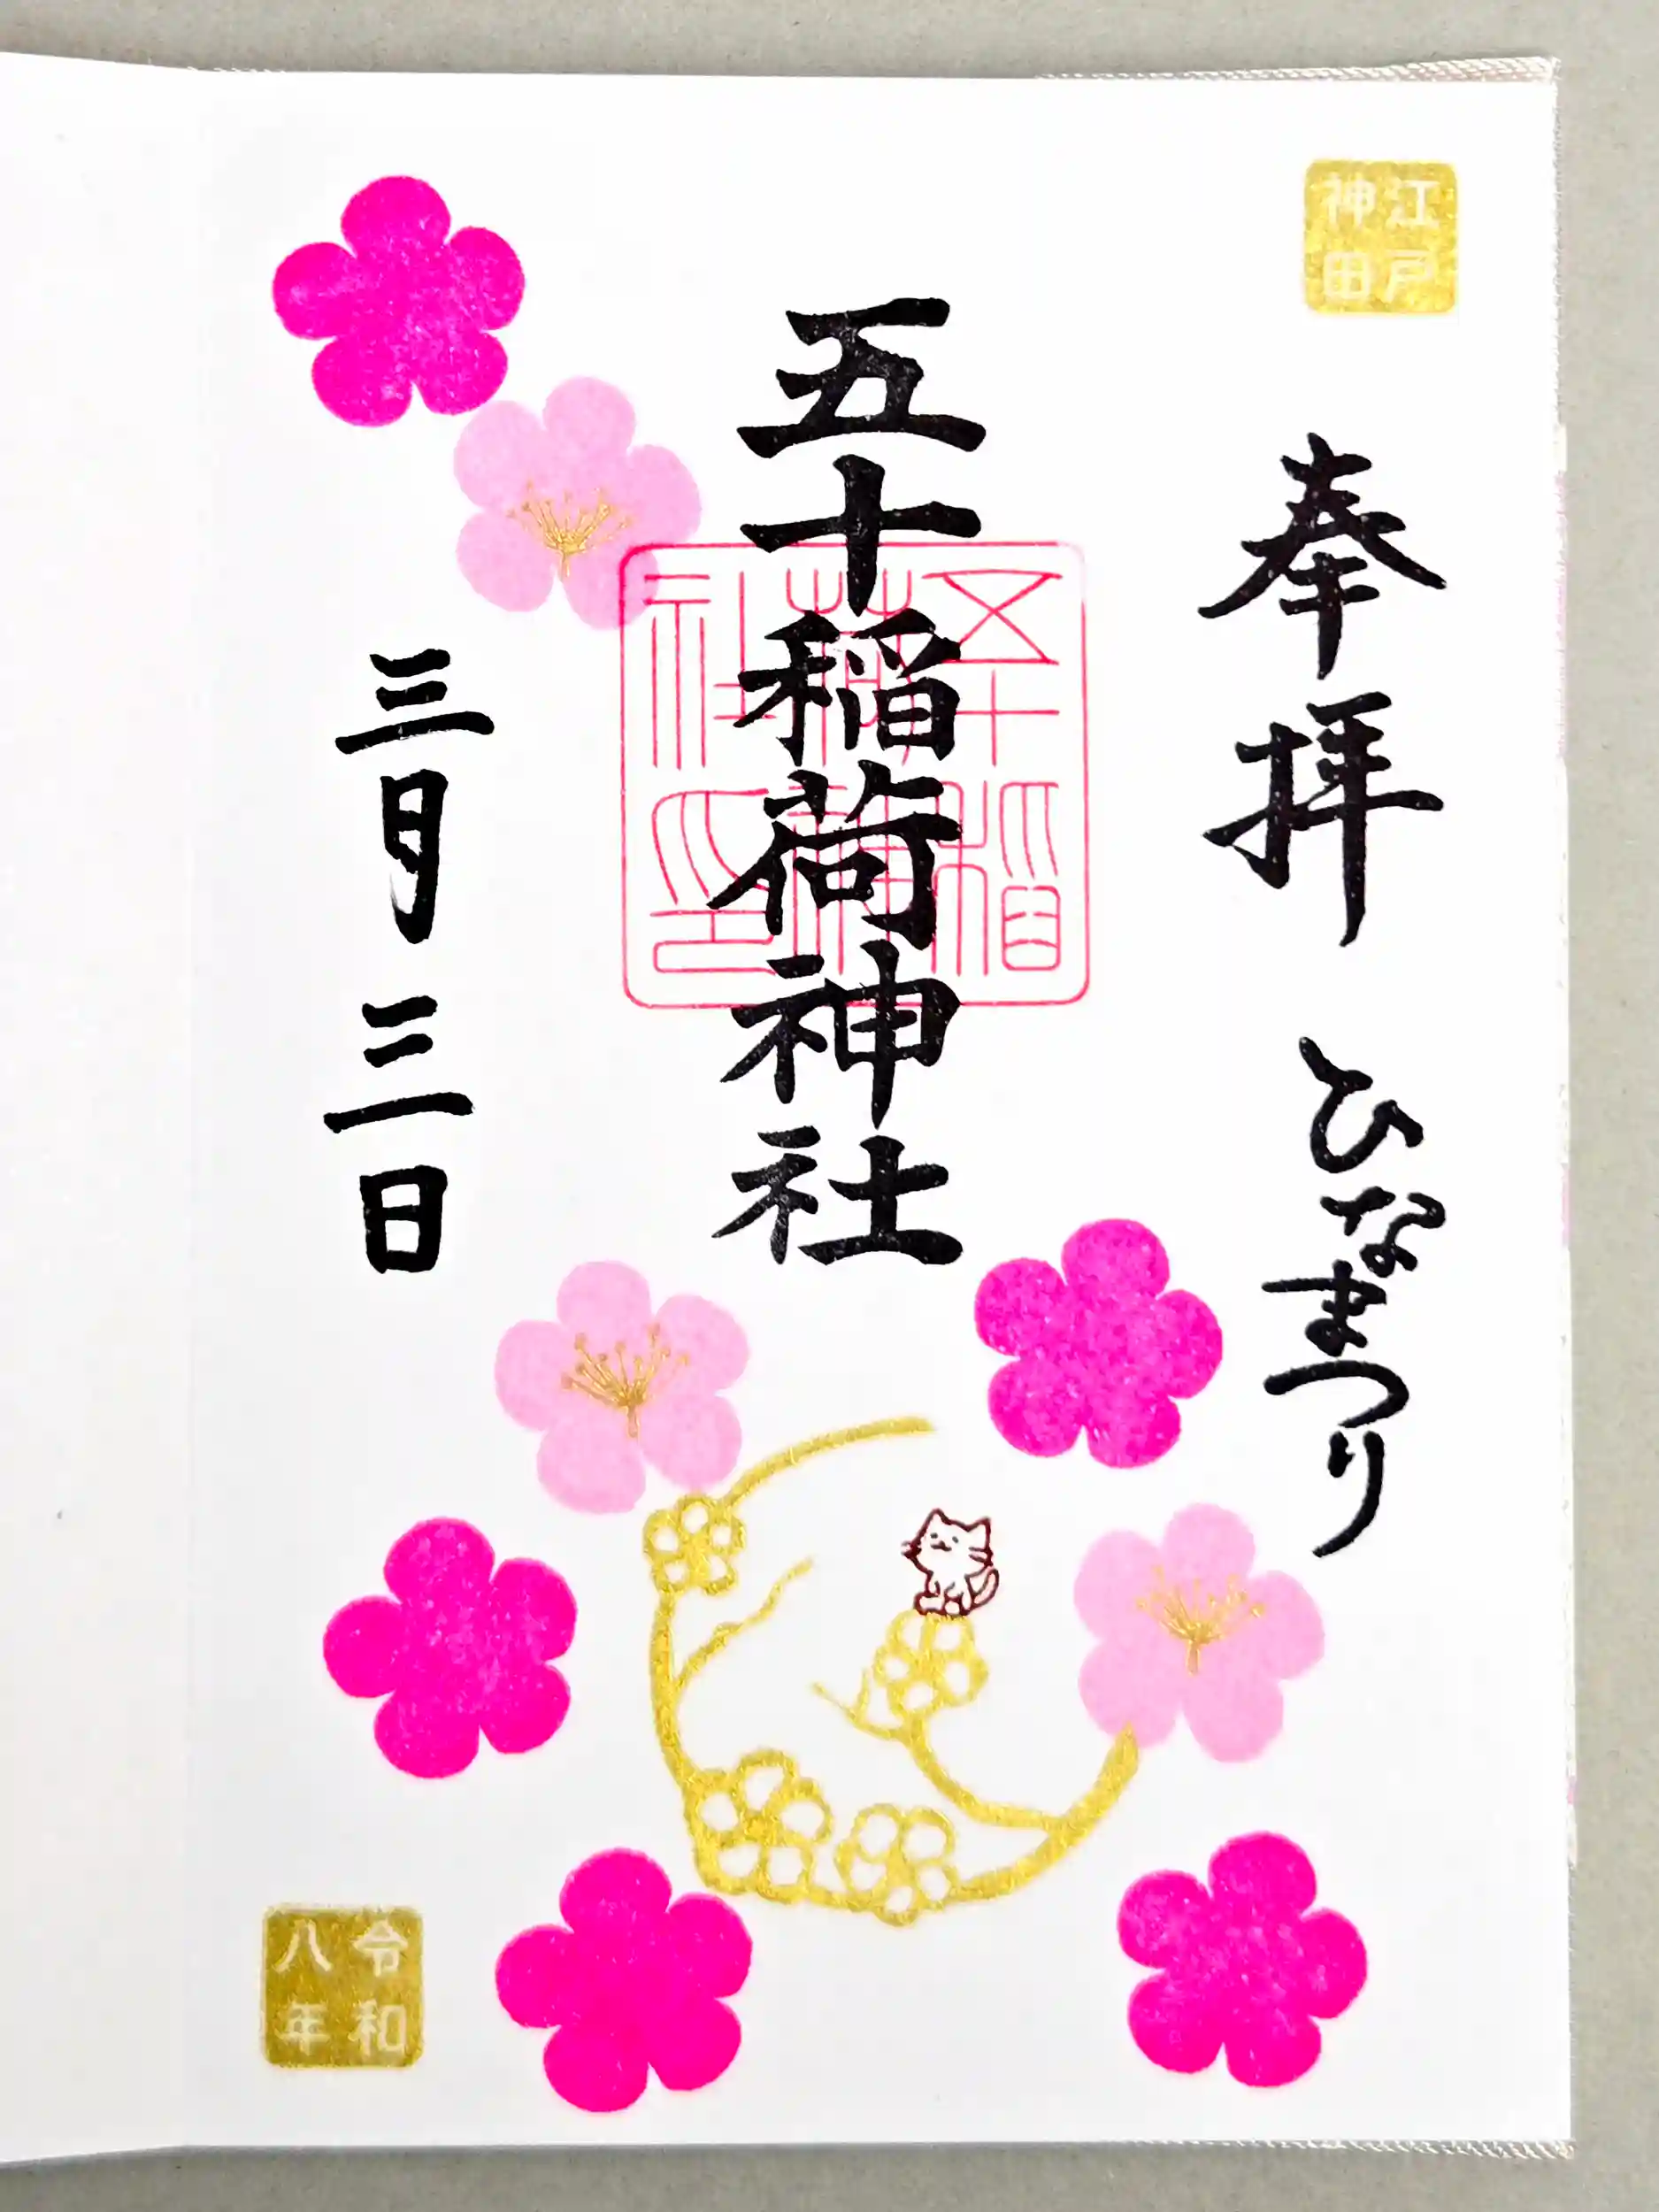 江戸
神田
奉拝 ひなまつり
五十稲荷神社
五十稲
荷神
社印
三月三日
令和
八年